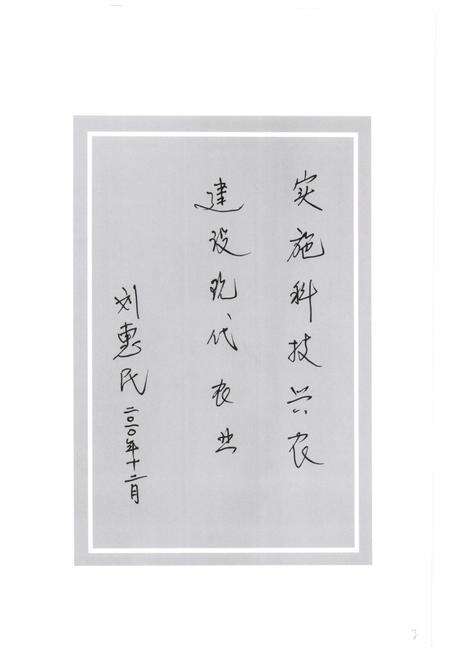 实施科技兴农
建设现代农业
刘惠民
二〇一〇年十二月